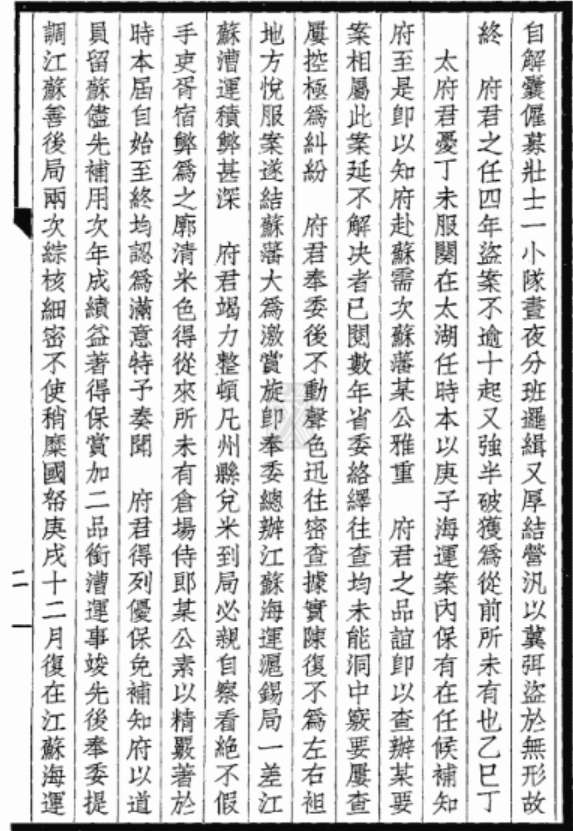 自解囊僱募壯士一小隊晝夜分班邏緝又厚結營汛以冀弭盜於無形故
終　府君之任四年盜案不逾十起又強半破獲爲從前所未有也乙巳丁
太府君憂丁未服闋在太湖任時本以庚子海運案內保有在任候補知
府至是卽以知府赴蘇需次蘇藩某公雅重　府君之品誼卽以查辦某要
案相屬此案延不解決者已閱數年省委絡繹往查均未能洞中竅要屢查
屢控極爲糾紛　府君奉委後不動聲色迅往密查據實陳復不爲左右袒
地方悅服案遂結蘇藩大爲激賞旋卽奉委總辦江蘇海運滬錫局一差江
蘇漕運積弊甚深　府君竭力整頓凡州縣兌米到局必親自察看絕不假
手吏胥宿弊爲之廓清米色得從來所未有倉場侍郎某公素以精嚴著於
時本屆自始至終均認爲滿意特予奏聞　府君得列優保免補知府以道
員留蘇儘先補用次年成績益著得保賞加二品銜漕運事竣先後奉委提
調江蘇善後局兩次綜核細密不使稍糜國帑庚戌十二月復在江蘇海運
二一